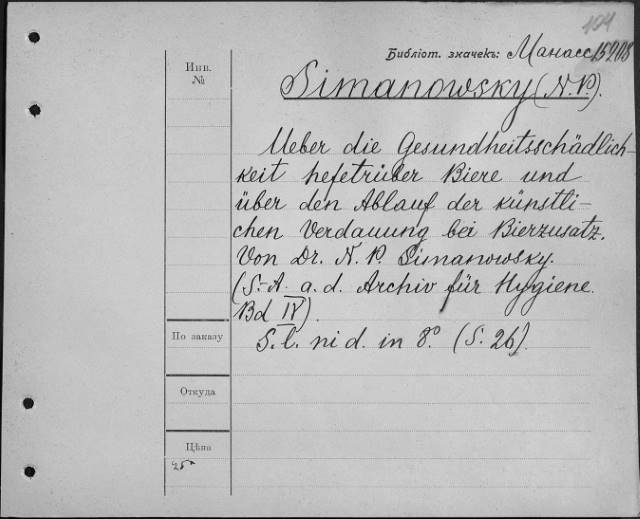 104
Библіот. значекъ: Манасс 15208
Инв.
№
Simanowsky (N. P.).
Ueber die Gesundheitsschädlich-
keit hefetrüber Biere und
über den Ablauf der künstli-
chen Verdauung bei Bierzusatz.
Von Dr. N. P. Simanowsky.
(S.-A. a. d. Archiv für Hygiene.
Bd IV).
S. l. ni d. in 8°. (S. 26).
По заказу
Откуда
Цѣна
25к